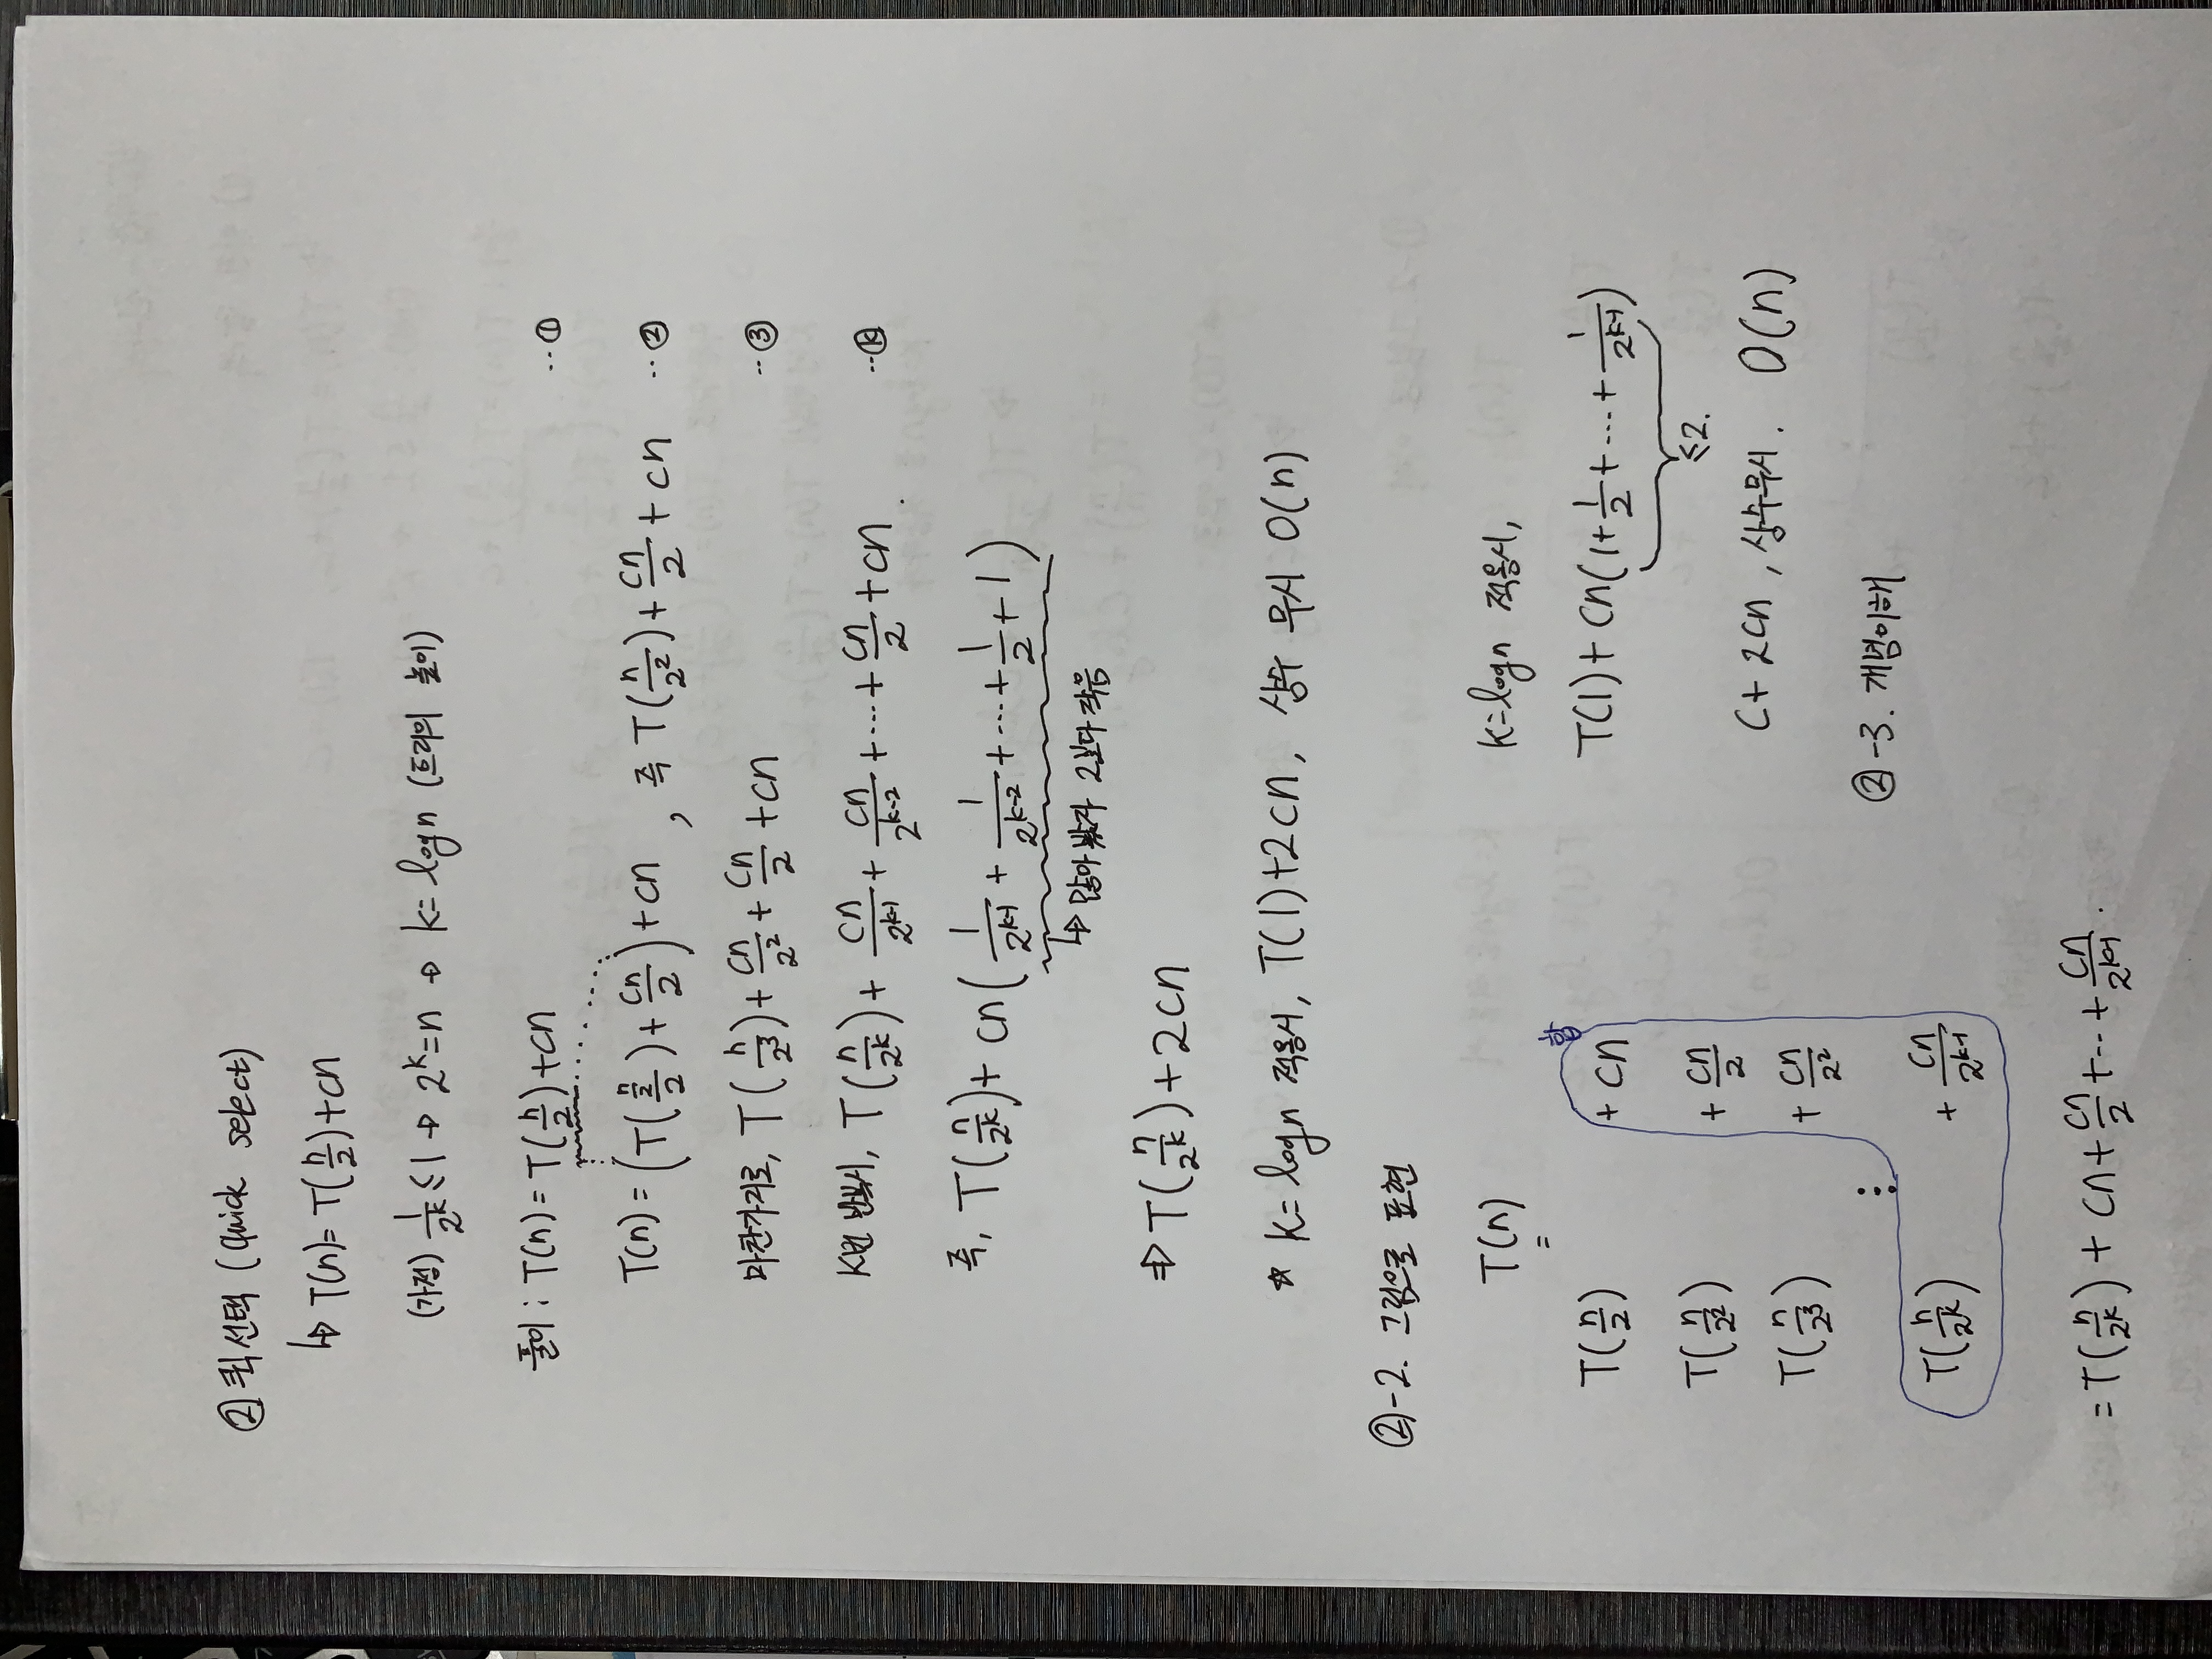 ② 퀵선택 (Quick select)
↳ T(n)= T(n/2)+cn
(가정) 1/2^k ≤ 1 → 2^k=n → k= logn (트리의 높이)
풀이 : T(n) = T(n/2)+cn ‥①
T(n) = (T((n/2)/2)+cn/2)+cn , 즉 T(n/2^2)+cn/2+cn ‥②
마찬가지로, T(n/2^3)+cn/2^2+cn/2+cn ‥③
K번 반복시, T(n/2^k)+cn/2^(k-1)+cn/2^(k-2)+⋯+cn/2+cn. ‥ⓚ
즉, T(n/2^k)+cn(1/2^(k-1)+1/2^(k-2)+⋯+1/2+1)
↳ 많아 봤자 2보다 작음
⇒ T(n/2^k)+2cn
* K= logn 적용시, T(1)+2cn, 상수 무시 O(n)
②-2. 그림으로 표현
T(n)
=
합
T(n/2) + cn
T(n/2^2) + cn/2
T(n/2^3) + cn/2^2
⋮
T(n/2^k) + cn/2^(k-1)
= T(n/2^k) + cn+cn/2+‥+cn/2^(k-1).
K=logn 적용시,
T(1)+cn(1+1/2+…+1/2^(k-1))
≤2.
C+2cn , 상수무시. O(n)
②-3. 개념이해